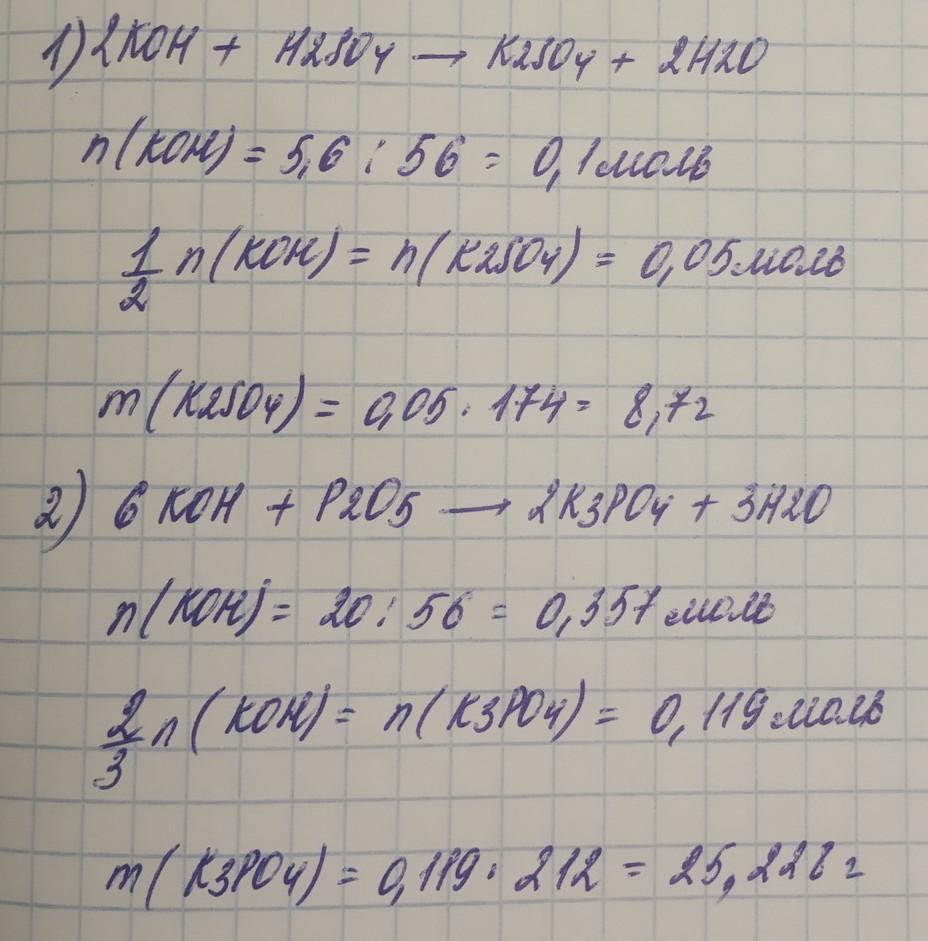 1) 2KOH + H2SO4 → K2SO4 + 2H2O
n(KOH) = 5,6 : 56 = 0,1 моль
1/2 n(KOH) = n(K2SO4) = 0,05 моль
m(K2SO4) = 0,05 · 174 = 8,7 г
2) 6 KOH + P2O5 → 2K3PO4 + 3H2O
n(KOH) = 20 : 56 = 0,357 моль
2/3 n(KOH) = n(K3PO4) = 0,119 моль
m(K3PO4) = 0,119 · 212 = 25,228 г